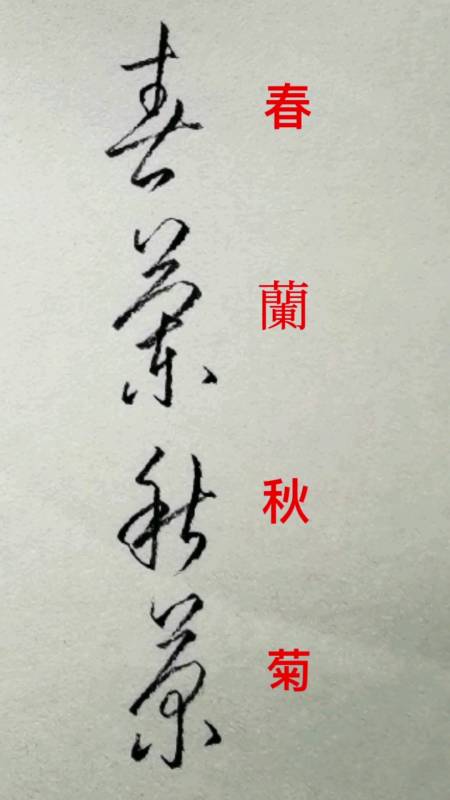 春蘭秋菊
春
蘭
秋
菊